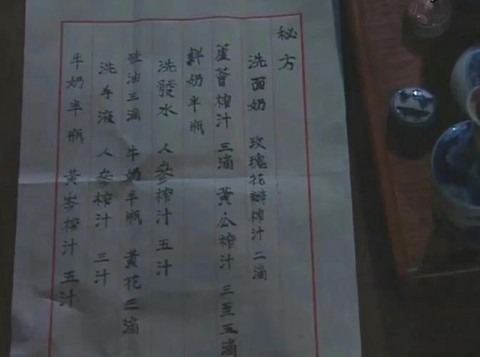 秘方
洗面奶 玫瑰花瓣榨汁 二滴
蘆薈榨汁 三滴 黃瓜榨汁 三至五滴
鮮奶半瓶
洗發水 人參榨汁 五汁
油三滴 牛奶半瓶 黃花三滴
洗手液 人參榨汁 三汁
牛奶半瓶 黃岑榨汁 五汁